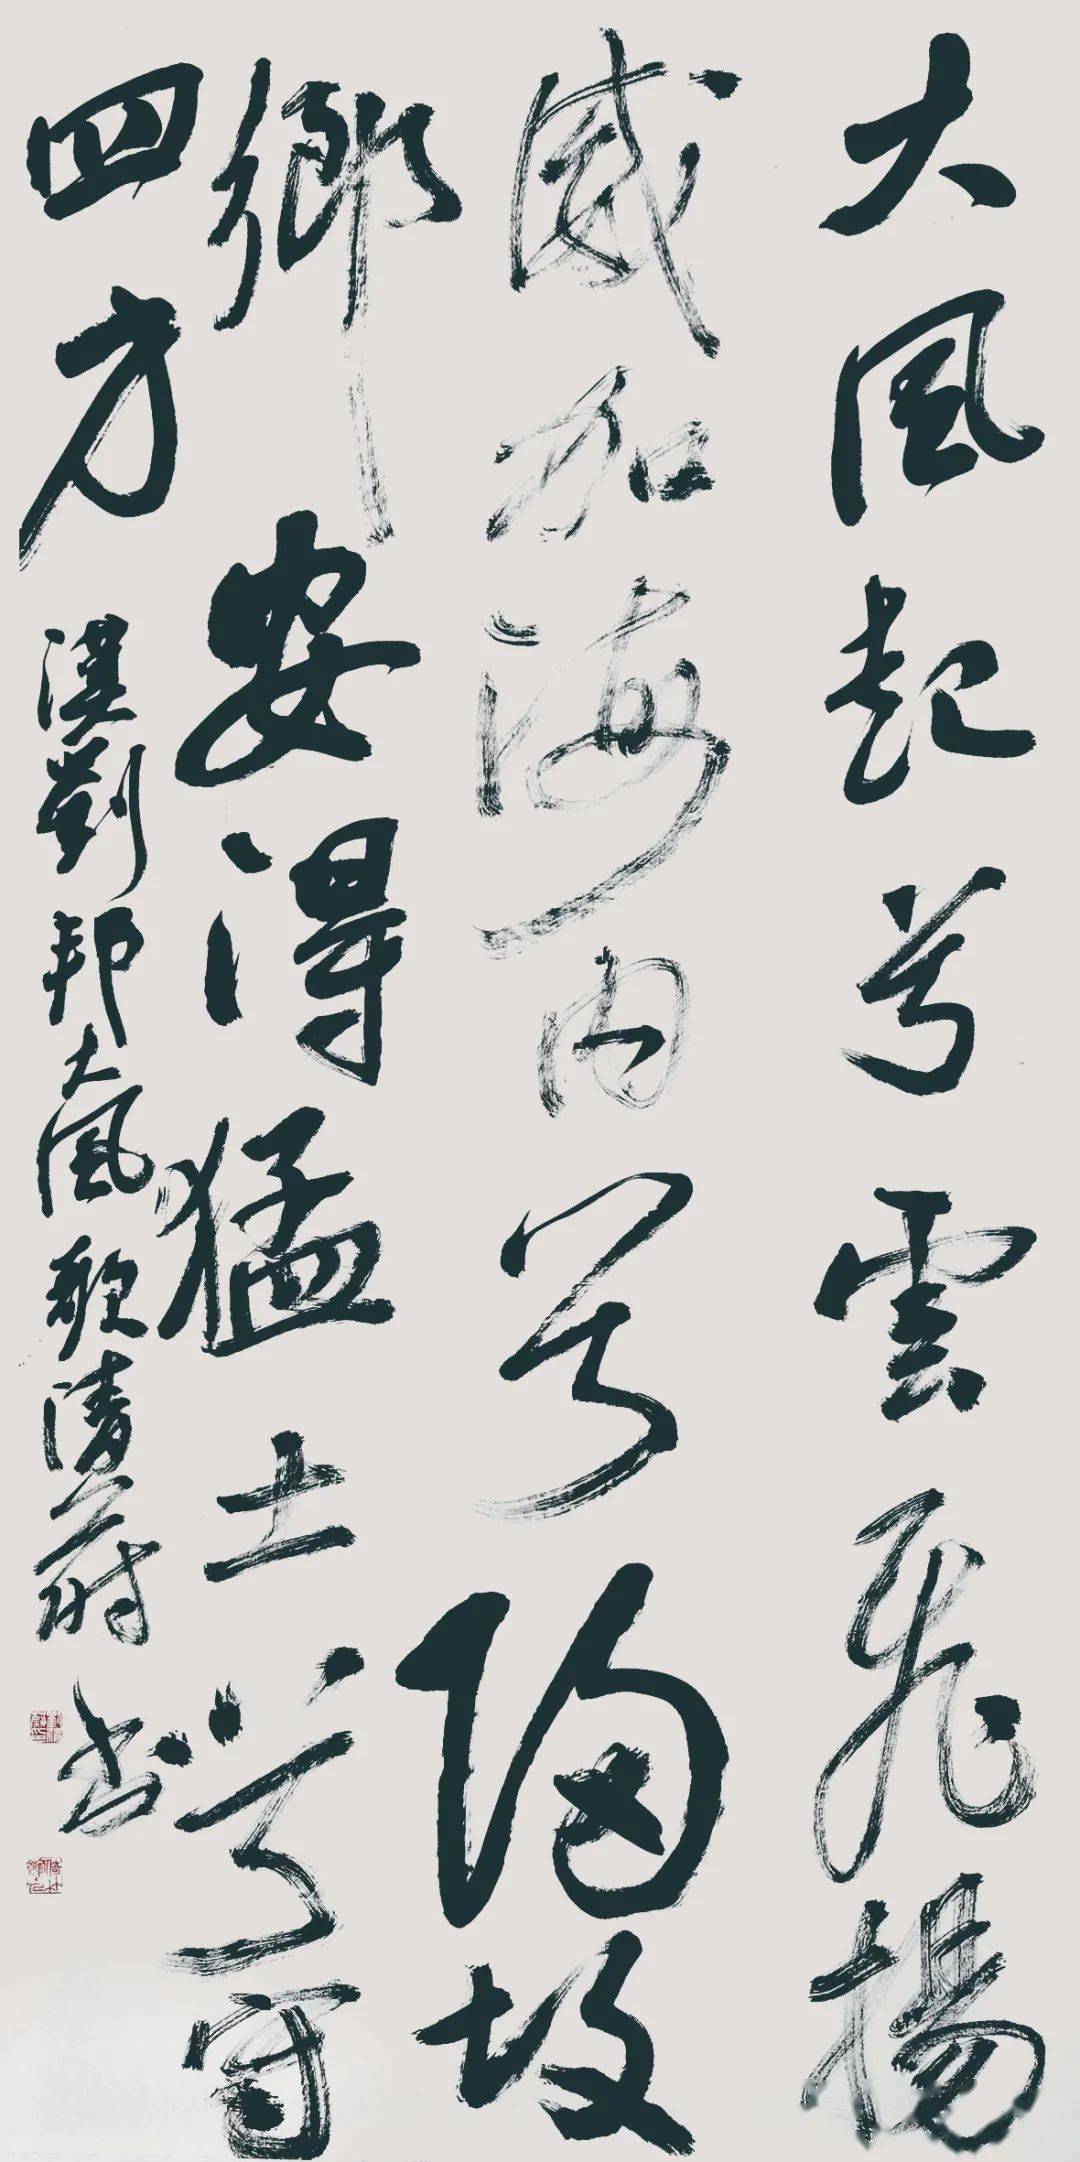 大風起兮雲飛揚
威加海内兮歸故
鄉安得猛士兮守
四方
漢劉邦大風歌清書